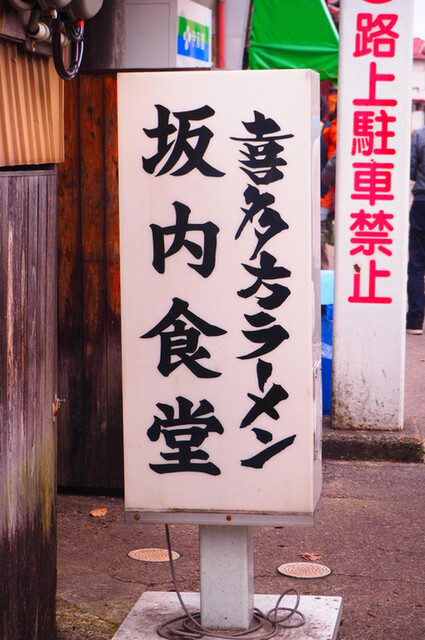 喜多方ラーメン
坂内食堂
路上駐車禁止